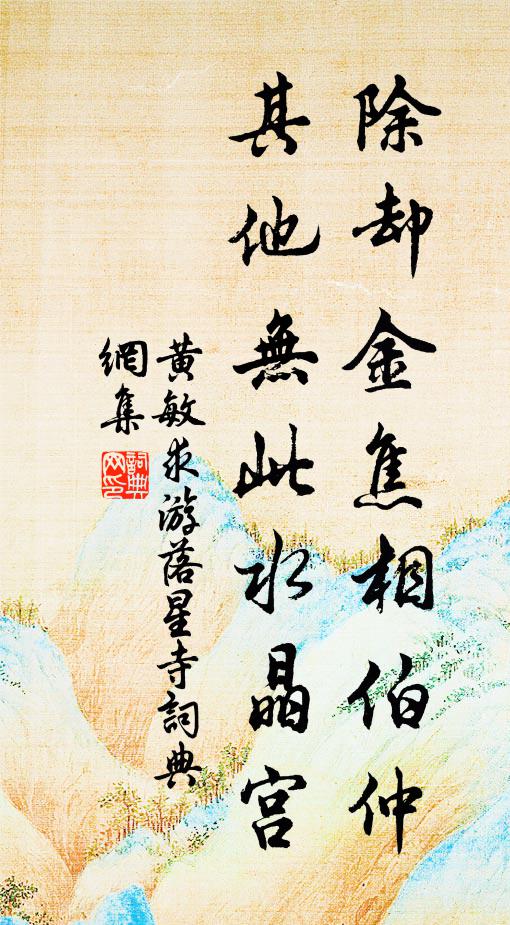 除却金焦相伯仲
其他無此水晶宫
黄敏求游落星寺詞典
網集
詞典
网印